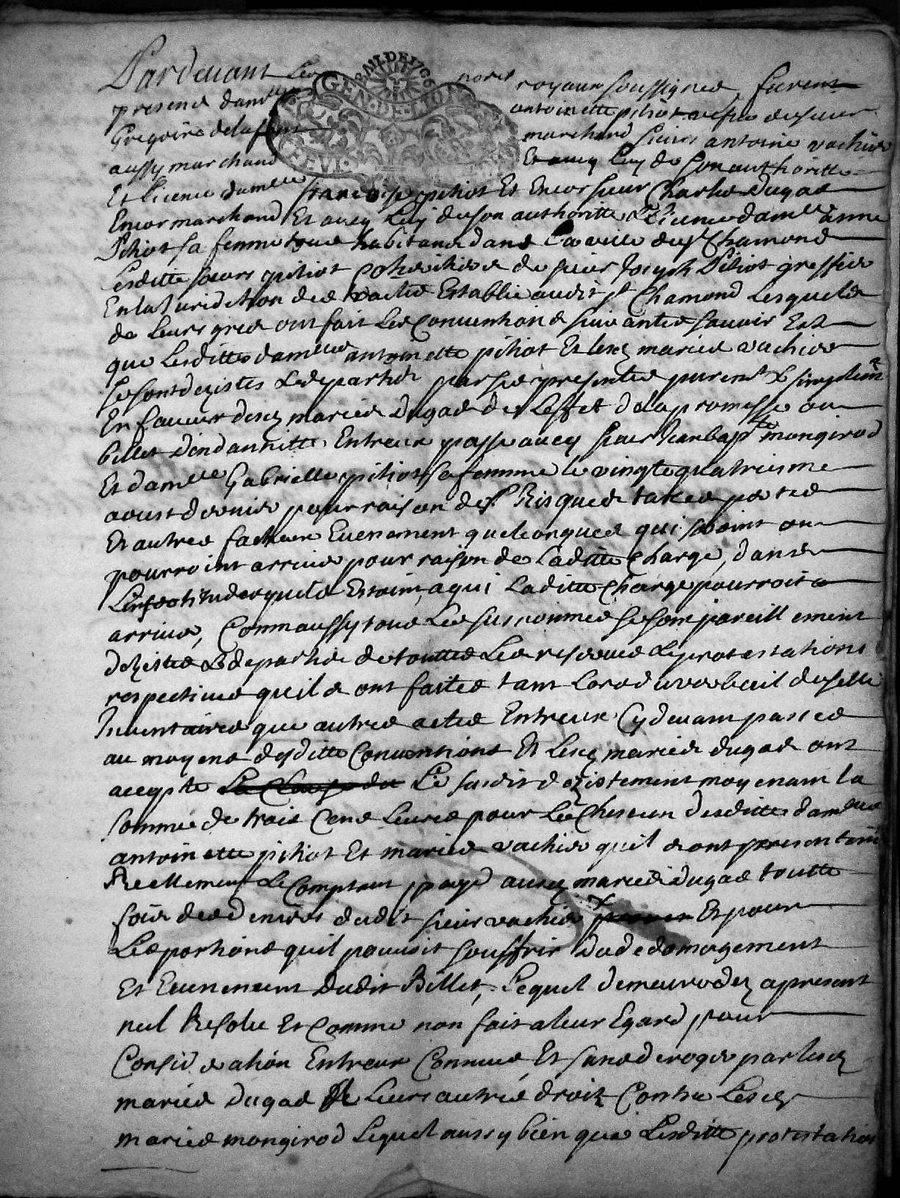 Pardevant Les nores royaux soussignes, furent
presens damlle antoinette pitiot vefve de sieur
Gregoire dela marchand sieur antoine vachier
aussy marchand Et avecq Luy de son authoritte
Et licence damlle francoise pitiot Et Encor sieur Charles dugas
Encor marchand Et avecq Luy de son authoritte & licence damlle anne
Pitiot sa femme tous habitans dans La ville de st Chamond
Lesditte soeurs pitiot coheritiere de sieur Joseph Pitiot greffier
En la Juridiction des Establie audit st Chamond Lesquels
de Leurs gres ont fait Les Conventions suivantes savoir Est
que Lesdittes damlles antoinette pitiot Et Lesq maries vachier
se sont dezistes & departis par ses presentes puremt & simplemt
En faveur desq maries dugas de Leffet de la promesse ou
billet dendamnitte Entreux passe avecq sieur Jean bapte mongirod
Et damlle Gabrielle pitiot sa femme le vingtequatriesme
aoust dernier pour raison des Risques taxes pertes
Et autres facheux Evenement quelconques qui soint ou
pourroint arriver pour raison de Laditte Charge, dans
Lincertitude quils Estoint, a qui Laditte Charge pourroit
arriver, Comm aussy tous Les susnommes se sont pareillement
dezistes & departis de touttes Les reserves & protestations
respectives quils ont faites tant Lors du verbail de selle
Inventaires que autres actes Entreux Cydevant passes
au moyens desditte Conventions Et Lesq maries dugas ont
accepte Le susdit dezistement moyenant la
somme de trois Cens Livres pour Le Chescun desditte damlles
antoinette pitiot Et maries vachier quils ont presentemt
Reellement & Comptant payes auxq maries dugas toutte
fois des deniers dudit sieur vachier Et pour
Les portions quil pouvoit souffrir Du dedomagement
Et Evenement dudit Billet, Lequel demeure dez apresent
nul Resolu Et Comme non fait a leur Egard pour
Consideration Entreux Connues, Et sans deroger par lesq
maries dugas A Leurs autres droitz Contre Lesq
maries mongirod Lequel aussy bien que Lesditte protestations
GEN. DE LYON